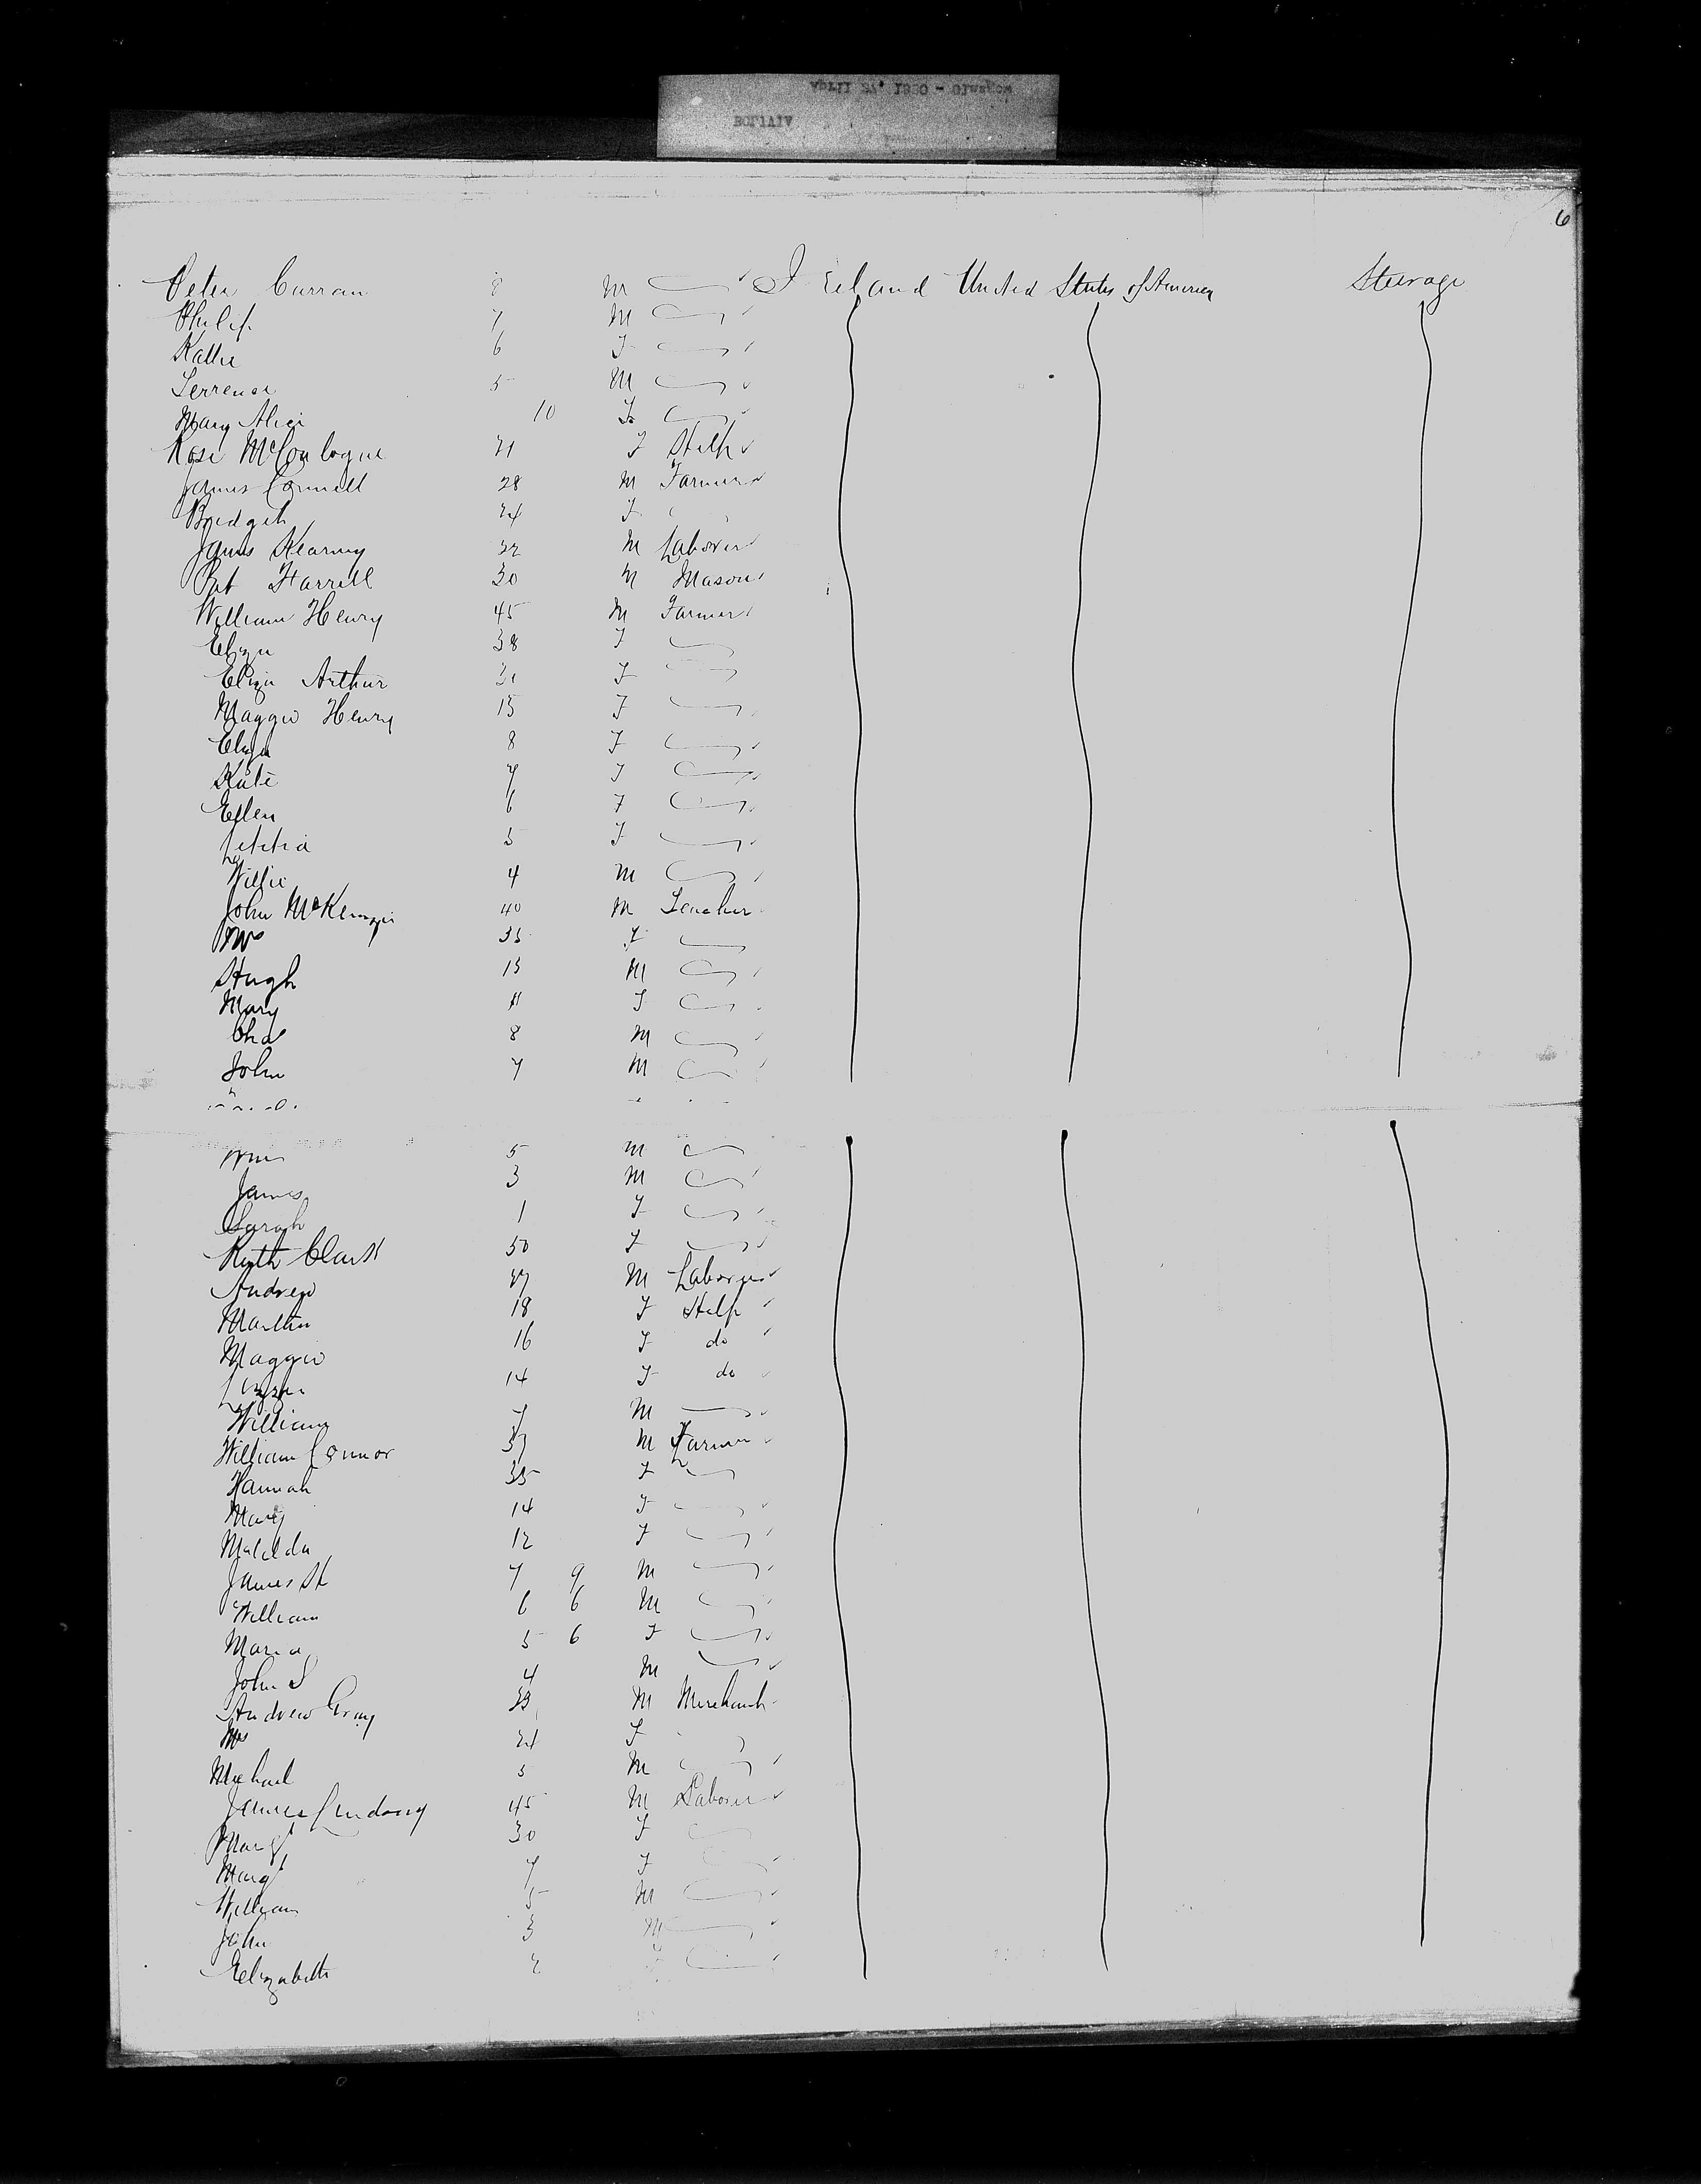 6
Peter Curran 8 M Ireland United States of America Steerage
Philip 7 M
Katie 6 F
Terrence 5 M
Mary Alice 10 F
Rose McConlogue 21 F Help
James Connell 28 M Farmer
Bridget 24 F
James Kearney 32 M Laborer
Pat Farrell 30 M Mason
William Henry 45 M Farmer
Eliza 38 F
Eliza Arthur 31 F
Maggie Henry 15 F
Eliza 8 F
Kate 7 F
Ellen 6 F
Letitia 5 F
Willie 4 M
John McKenzie 40 M Teacher
Mrs 35 F
Hugh 13 M
Mary 11 F
Chas 8 M
John 7 M
Wm 5 M
James 3 M
Sarah 1 F
Ruth Clark 50 F
Andrew M Laborer
Martha 18 F Help
Maggie 16 F do
Lizzie 14 F do
William 7 M
William Connor 37 M Farmer
Hannah 35 F
Mary 14 F
Matilda 12 F
James H 7 9 M
William 6 6 M
Maria 5 6 F
John S 4 M
Andrew Gray M Merchant
Mrs 24 F
Michael 3 M
James Lindsay 45 M Laborer
Margt 30 F
Margt 7 F
William 5 M
John 3 M
Elizabeth 2 F